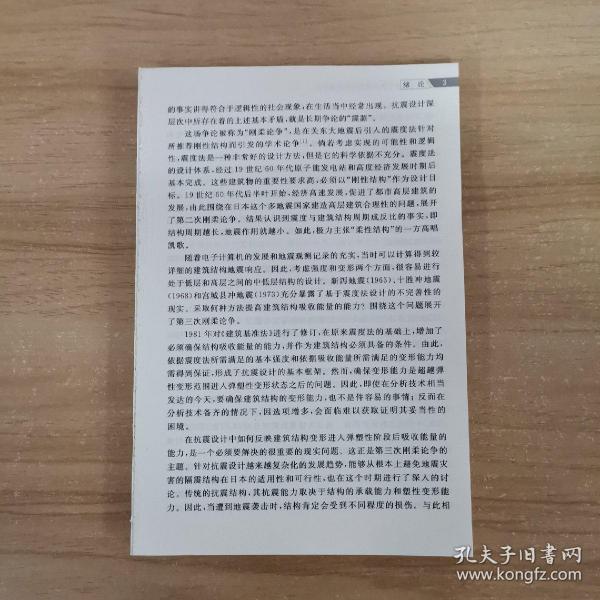 绪 论 3
的事实讲得符合于逻辑性的社会现象,在生活当中经常出现。抗震设计深
层次中所存在着的上述基本矛盾,就是长期争论的“震源”。
这场争论被称为“刚柔论争”,是在关东大地震后引入的震度法针对
所推荐刚性结构而引发的学术论争[1]。倘若考虑实现的可能性和逻辑
性,震度法是一种非常好的设计方法,但是它的科学依据不充分。震度法
的设计体系,经过19世纪60年代原子能发电站和高度经济发展时期后
基本完成。这些建筑物的重要性要求高,必须以“刚性结构”作为设计目
标。19世纪60年代后半叶开始,经济高速发展,促进了都市高层建筑的
发展,由此围绕在日本这个多地震国家建造高层建筑合理性的问题,展开
了第二次刚柔论争。结果认识到震度与建筑结构周期成反比的事实,即
结构周期越长,地震作用就越小。如此,极力主张“柔性结构”的一方高唱
凯歌。
随着电子计算机的发展和地震观测记录的充实,当时可以计算得到较
详细的建筑结构地震响应。因此,考虑强度和变形两个方面,很容易进行
处于低层和高层之间的中低层结构的设计。新泻地震(1965)、十胜冲地震
(1968)和宫城县冲地震(1973)充分暴露了基于震度法设计的不完善性的
现实。采取何种方法提高建筑结构吸收能量的能力?围绕这个问题展开了
第三次刚柔论争。
1981年对《建筑基准法》进行了修订,在原来震度法的基础上,增加了
必须确保结构吸收能量的能力,并作为建筑结构必须具备的条件。由此,
依据震度法所需满足的基本强度和依据吸收能量所需满足的变形能力均
需得到保证,形成了抗震设计的基本框架。然而,确保变形能力是超越弹
性变形范围进入弹塑性变形状态之后的问题。因此,即使在分析技术相当
发达的今天,要确保建筑结构的变形能力,也不是件容易的事情;反而在
分析技术备齐的情况下,因选项增多,会面临难以获取证明其妥当性的
困境。
在抗震设计中如何反映建筑结构变形进入弹塑性阶段后吸收能量的
能力,是一个必须要解决的很重要的现实问题。这正是第三次刚柔论争的
主题。针对抗震设计越来越复杂化的发展趋势,能够从根本上避免地震灾
害的隔震结构在日本的适用性和可行性,也在这个时期进行了深入的讨
论。传统的抗震结构,其抗震能力取决于结构的承载能力和塑性变形能
力。因此,当遭到地震袭击时,结构肯定会受到不同程度的损伤。与此相
孔夫子旧书网
www.kongfz.com